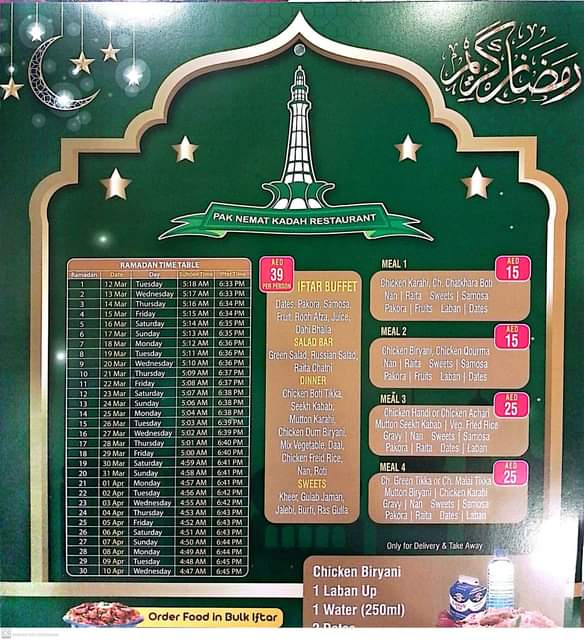 رمضان كريم
PAK NEMAT KADAH RESTAURANT
RAMADAN TIME TABLE
Ramadan Date Day Suhoor Time Iftar Time
1 12 Mar Tuesday 5:18 AM 6:33 PM
2 13 Mar Wednesday 5:17 AM 6:33 PM
3 14 Mar Thursday 5:16 AM 6:34 PM
4 15 Mar Friday 5:15 AM 6:34 PM
5 16 Mar Saturday 5:14 AM 6:35 PM
6 17 Mar Sunday 5:13 AM 6:35 PM
7 18 Mar Monday 5:12 AM 6:36 PM
8 19 Mar Tuesday 5:11 AM 6:36 PM
9 20 Mar Wednesday 5:10 AM 6:36 PM
10 21 Mar Thursday 5:09 AM 6:37 PM
11 22 Mar Friday 5:08 AM 6:37 PM
12 23 Mar Saturday 5:07 AM 6:38 PM
13 24 Mar Sunday 5:06 AM 6:38 PM
14 25 Mar Monday 5:04 AM 6:38 PM
15 26 Mar Tuesday 5:03 AM 6:39 PM
16 27 Mar Wednesday 5:02 AM 6:39 PM
17 28 Mar Thursday 5:01 AM 6:40 PM
18 29 Mar Friday 5:00 AM 6:40 PM
19 30 Mar Saturday 4:59 AM 6:41 PM
20 31 Mar Sunday 4:58 AM 6:41 PM
21 01 Apr Monday 4:57 AM 6:41 PM
22 02 Apr Tuesday 4:56 AM 6:42 PM
23 03 Apr Wednesday 4:55 AM 6:42 PM
24 04 Apr Thursday 4:53 AM 6:43 PM
25 05 Apr Friday 4:52 AM 6:43 PM
26 06 Apr Saturday 4:51 AM 6:43 PM
27 07 Apr Sunday 4:50 AM 6:44 PM
28 08 Apr Monday 4:49 AM 6:44 PM
29 09 Apr Tuesday 4:48 AM 6:45 PM
30 10 Apr Wednesday 4:47 AM 6:45 PM
AED
39
PER PERSON
IFTAR BUFFET
Dates, Pakora, Samosa,
Fruit, Rooh Afza, Juice,
Dahi Bhalla
SALAD BAR
Green Salad, Russian Salad,
Raita Chatni
DINNER
Chicken Boti Tikka,
Seekh Kabab,
Mutton Karahi,
Chicken Dum Biryani,
Mix Vegetable, Daal,
Chicken Freid Rice,
Nan, Roti
SWEETS
Kheer, Gulab Jaman,
Jalebi, Burfi, Ras Gulla
MEAL 1
AED
15
Chicken Karahi, Ch. Chatkhara Boti
Nan | Raita Sweets | Samosa
Pakora | Fruits Laban | Dates
MEAL 2
AED
15
Chicken Biryani, Chicken Qourma
Nan | Raita Sweets | Samosa
Pakora | Fruits Laban | Dates
MEAL 3
AED
25
Chicken Handi or Chicken Achari
Mutton Seekh Kabab | Veg. Fried Rice
Gravy | Nan Sweets | Samosa
Pakora | Raita Dates | Laban
MEAL 4
AED
25
Ch. Green Tikka or Ch. Malai Tikka
Mutton Biryani | Chicken Karahi
Gravy | Nan Sweets | Samosa
Pakora | Raita Dates | Laban
Only for Delivery & Take Away
Chicken Biryani
1 Laban Up
1 Water (250ml)
2 Dates
Order Food in Bulk Iftar